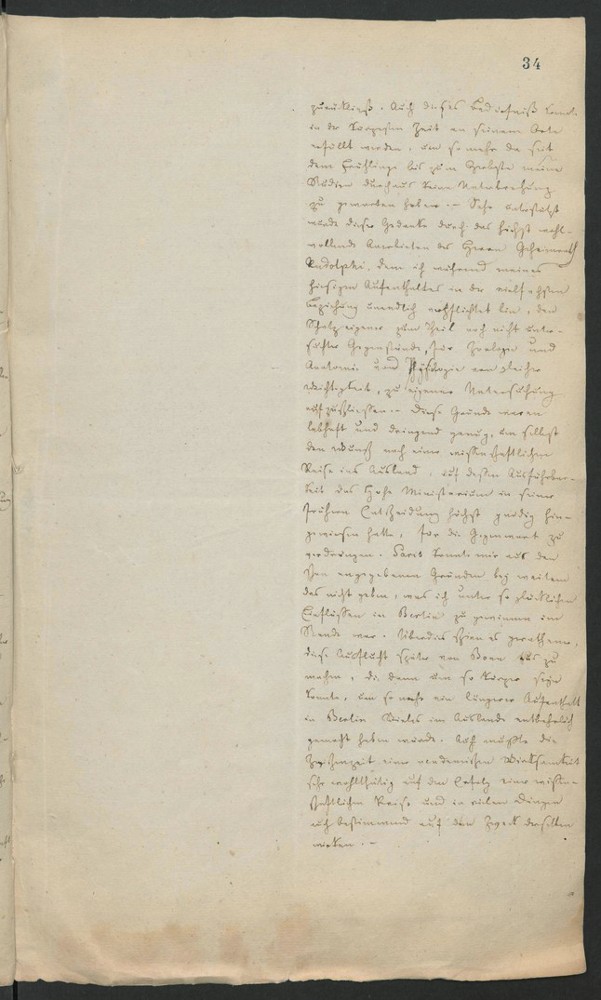 34
zurückließ. Auch dieses Bedürfniß konnte
in der kürzesten Zeit an seinem Orte
erfüllt werden, um so mehr da seit
dem Frühlinge bis zum Herbste meine
Studien durchaus keine Unterbrechung
zu haben. – Sehr unterstützt
wurde dieser Gedanke durch das höchst wohl-
wollende Anerbieten des Herrn Geheimrath
Rudolphi, dem ich während meines
hiesigen Aufenthaltes in der vielfachsten
Beziehung unendlich verpflichtet bin, den
Schatz eigener zum Theil noch nicht unter-
suchter Gegenstände, für Zoologie und
Anatomie und Physiologie von gleicher
Wichtigkeit, zu eigener Untersuchung
aufzuschliessen. – Diese Gründe waren
lebhaft und dringend genug, um selbst
den Wunsch nach einer wissenschaftlichen
Reise ins Ausland, auf dessen Ausführbar-
keit das Hohe Ministerium in seiner
frühern Entscheidung höchst gnädig hin-
gewiesen hatte, für die Gegenwart zu
verdrängen. Paris konnte mir aus den
angegebenen Gründen bey weitem
das nicht geben, was ich unter so glücklichen
Einflüssen in Berlin zu gewinnen im
Stande war. Überdies schien es gerathener,
diese Ausflucht später von Bonn aus zu
machen, die dann um so kürzer seyn
konnte, um so mehr ein längerer Aufenthalt
in Berlin Vieles im Auslande entbehrlich
gemacht haben würde. Auch mußte die
Zwischenzeit einer academischen Wirksamkeit
sehr wohlthätig auf den Erfolg einer wissen-
schaftlichen Reise und in vielen Dingen
auch bestimmend auf den Zweck derselben
wirken. –